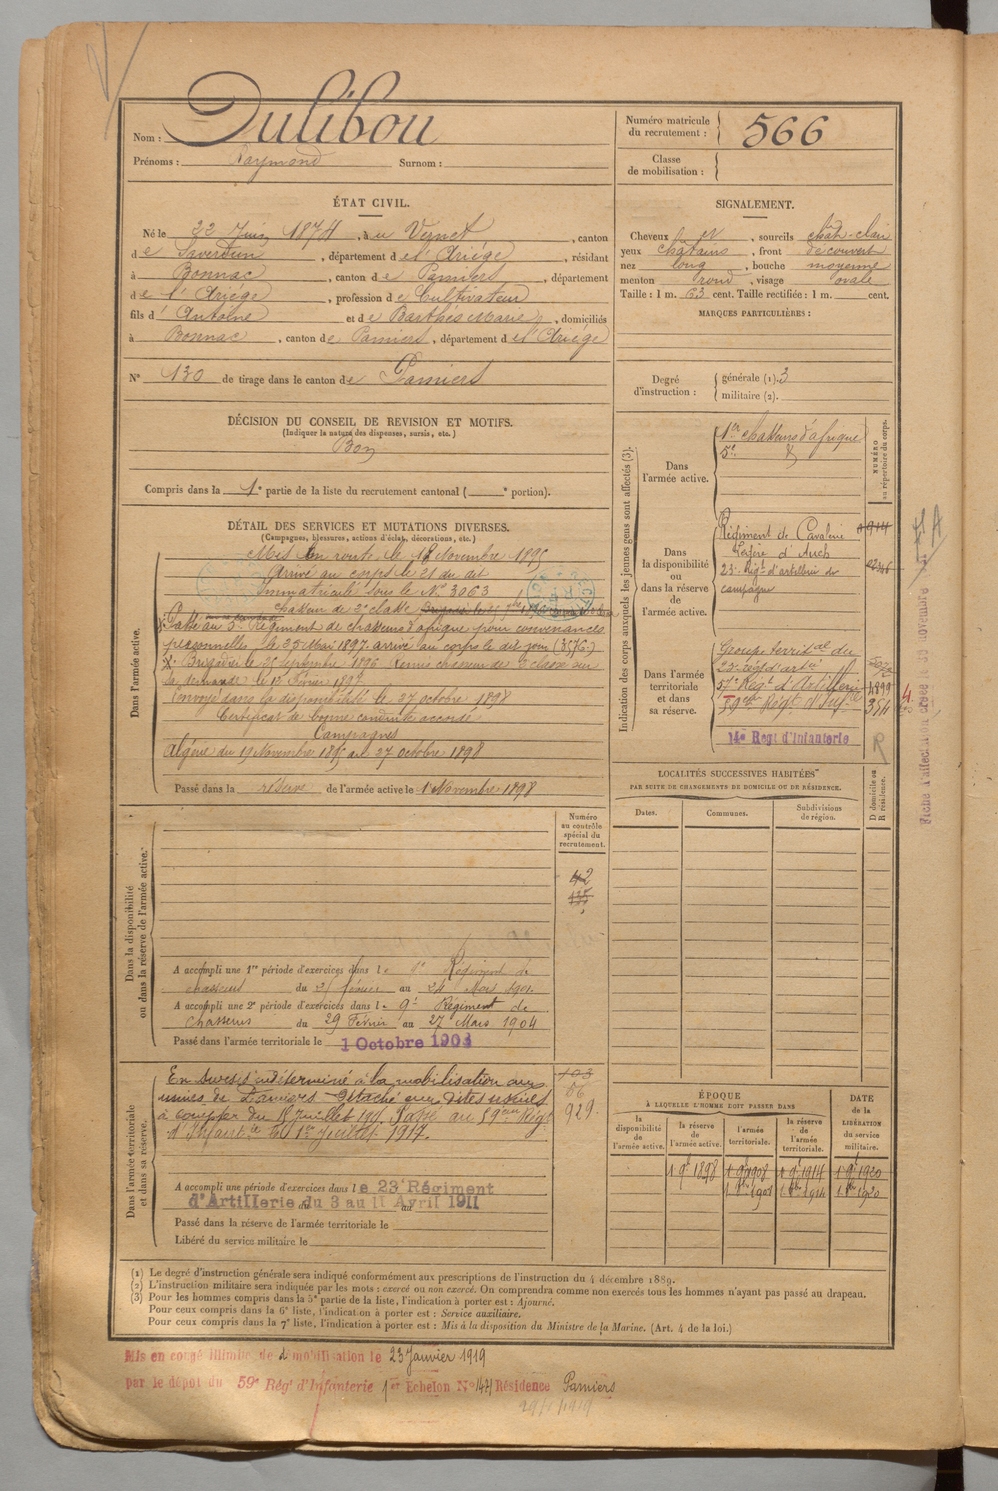 Nom : Dulibou
Prénoms : Raymond Surnom :
Numéro matricule du recrutement : 566
Classe de mobilisation :
ÉTAT CIVIL.
Né le 22 Juin 1874, à u Vernet, canton
de Saverdun, département de l'Ariége, résidant
à Bonnac, canton de Pamiers, département
de l'Ariége, profession de Cultivateur
fils d'Antoine et de Barthés Marie, domiciliés
à Bonnac, canton de Pamiers, département de l'Ariége
N° 130 de tirage dans le canton de Pamiers
SIGNALEMENT.
Cheveux et, sourcils chât-clair
yeux châtains, front découvert
nez long, bouche moyenne
menton rond, visage ovale
Taille : 1 m. 63 cent. Taille rectifiée : 1 m. cent.
MARQUES PARTICULIÈRES :
Degré d'instruction : générale (1). 3
militaire (2).
DÉCISION DU CONSEIL DE REVISION ET MOTIFS.
(Indiquer la nature des dispenses, sursis, etc.)
Bon
Compris dans la 1e partie de la liste du recrutement cantonal ( e portion).
DÉTAIL DES SERVICES ET MUTATIONS DIVERSES.
(Campagnes, blessures, actions d'éclat, décorations, etc.)
Dans l'armée active.
Mis en route le 18 Novembre 1895
Arrivé au corps le 21 du dit
Immatriculé sous le No 3063
Chasseur de 2e classe
Passé au 5e Régiment de chasseurs d'afrique pour convenances
personnelles le 25 Mai 1897. arrivé au corps le dit jour (3576.)
X. Brigadier le 25 septembre 1896 remis chasseur de 2e classe sur
sa demande le 13 Février 1897
Envoyé dans la disponibilité le 27 octobre 1898
Certificat de bonne conduite accordé
Campagnes
Algérie du 19 Novembre 1895 au 27 octobre 1898
Passé dans la réserve de l'armée active le 1 Novembre 1898
Indication des corps auxquels les jeunes gens sont affectés (3).
NUMÉRO au répertoire du corps.
Dans l'armée active.
1er chasseurs d'afrique
5e d°
Dans la disponibilité ou dans la réserve de l'armée active.
Régiment de Cavalerie
Légère d'Auch
23e Régt d'artillerie de
campagne
Dans l'armée territoriale et dans sa réserve.
Groupe territal du
23e régt d'artie
57e Régt d'Artillerie 1899
59e Régt d'Infie 354
14e Regt d'Infanterie R
Fiche d'affectation créée le 30 novembre
LOCALITÉS SUCCESSIVES HABITÉES
PAR SUITE DE CHANGEMENTS DE DOMICILE OU DE RÉSIDENCE.
Dates. Communes. Subdivisions de région. D domicile ou R résidence.
Dans la disponibilité ou dans la réserve de l'armée active.
Numéro au contrôle spécial du recrutement.
42
A accompli une 1re période d'exercices dans le 9e Régiment de
chasseurs du 25 février au 24 Mars 1901
A accompli une 2e période d'exercices dans le 9e Régiment de
chasseurs du 29 Février au 27 Mars 1904
Passé dans l'armée territoriale le 1 Octobre 1908
Dans l'armée territoriale et dans sa réserve.
En sursis indéterminé à la mobilisation aux 103
usines de Pamiers - Détaché aux dites usines 56
à compter du 15 Juillet 1915. Passé au 59eme Régt 929.
d'Infanterie le 1er Juillet 1917.
A accompli une période d'exercices dans le 23e Régiment
d'Artillerie du 3 au 11 Avril 1911
Passé dans la réserve de l'armée territoriale le
Libéré du service militaire le
ÉPOQUE
À LAQUELLE L'HOMME DOIT PASSER DANS
la disponibilité de l'armée active. la réserve de l'armée active. l'armée territoriale. la réserve de l'armée territoriale.
DATE de la LIBÉRATION du service militaire.
1 9e 1898 1 9e 1908 1 9e 1914 1 9e 1920
1 8bre 1908 1 8bre 1914 1 8bre 1920
(1) Le degré d'instruction générale sera indiqué conformément aux prescriptions de l'instruction du 4 décembre 1889.
(2) L'instruction militaire sera indiquée par les mots : exercé ou non exercé. On comprendra comme non exercés tous les hommes n'ayant pas passé au drapeau.
(3) Pour les hommes compris dans la 5e partie de la liste, l'indication à porter est : Ajourné.
Pour ceux compris dans la 6e liste, l'indication à porter est : Service auxiliaire.
Pour ceux compris dans la 7e liste, l'indication à porter est : Mis à la disposition du Ministre de la Marine. (Art. 4 de la loi.)
Mis en congé illimité de démobilisation le 23 Janvier 1919
par le dépôt du 59e Régt d'Infanterie 1er Echelon No 1471 Résidence Pamiers
29/1/1919